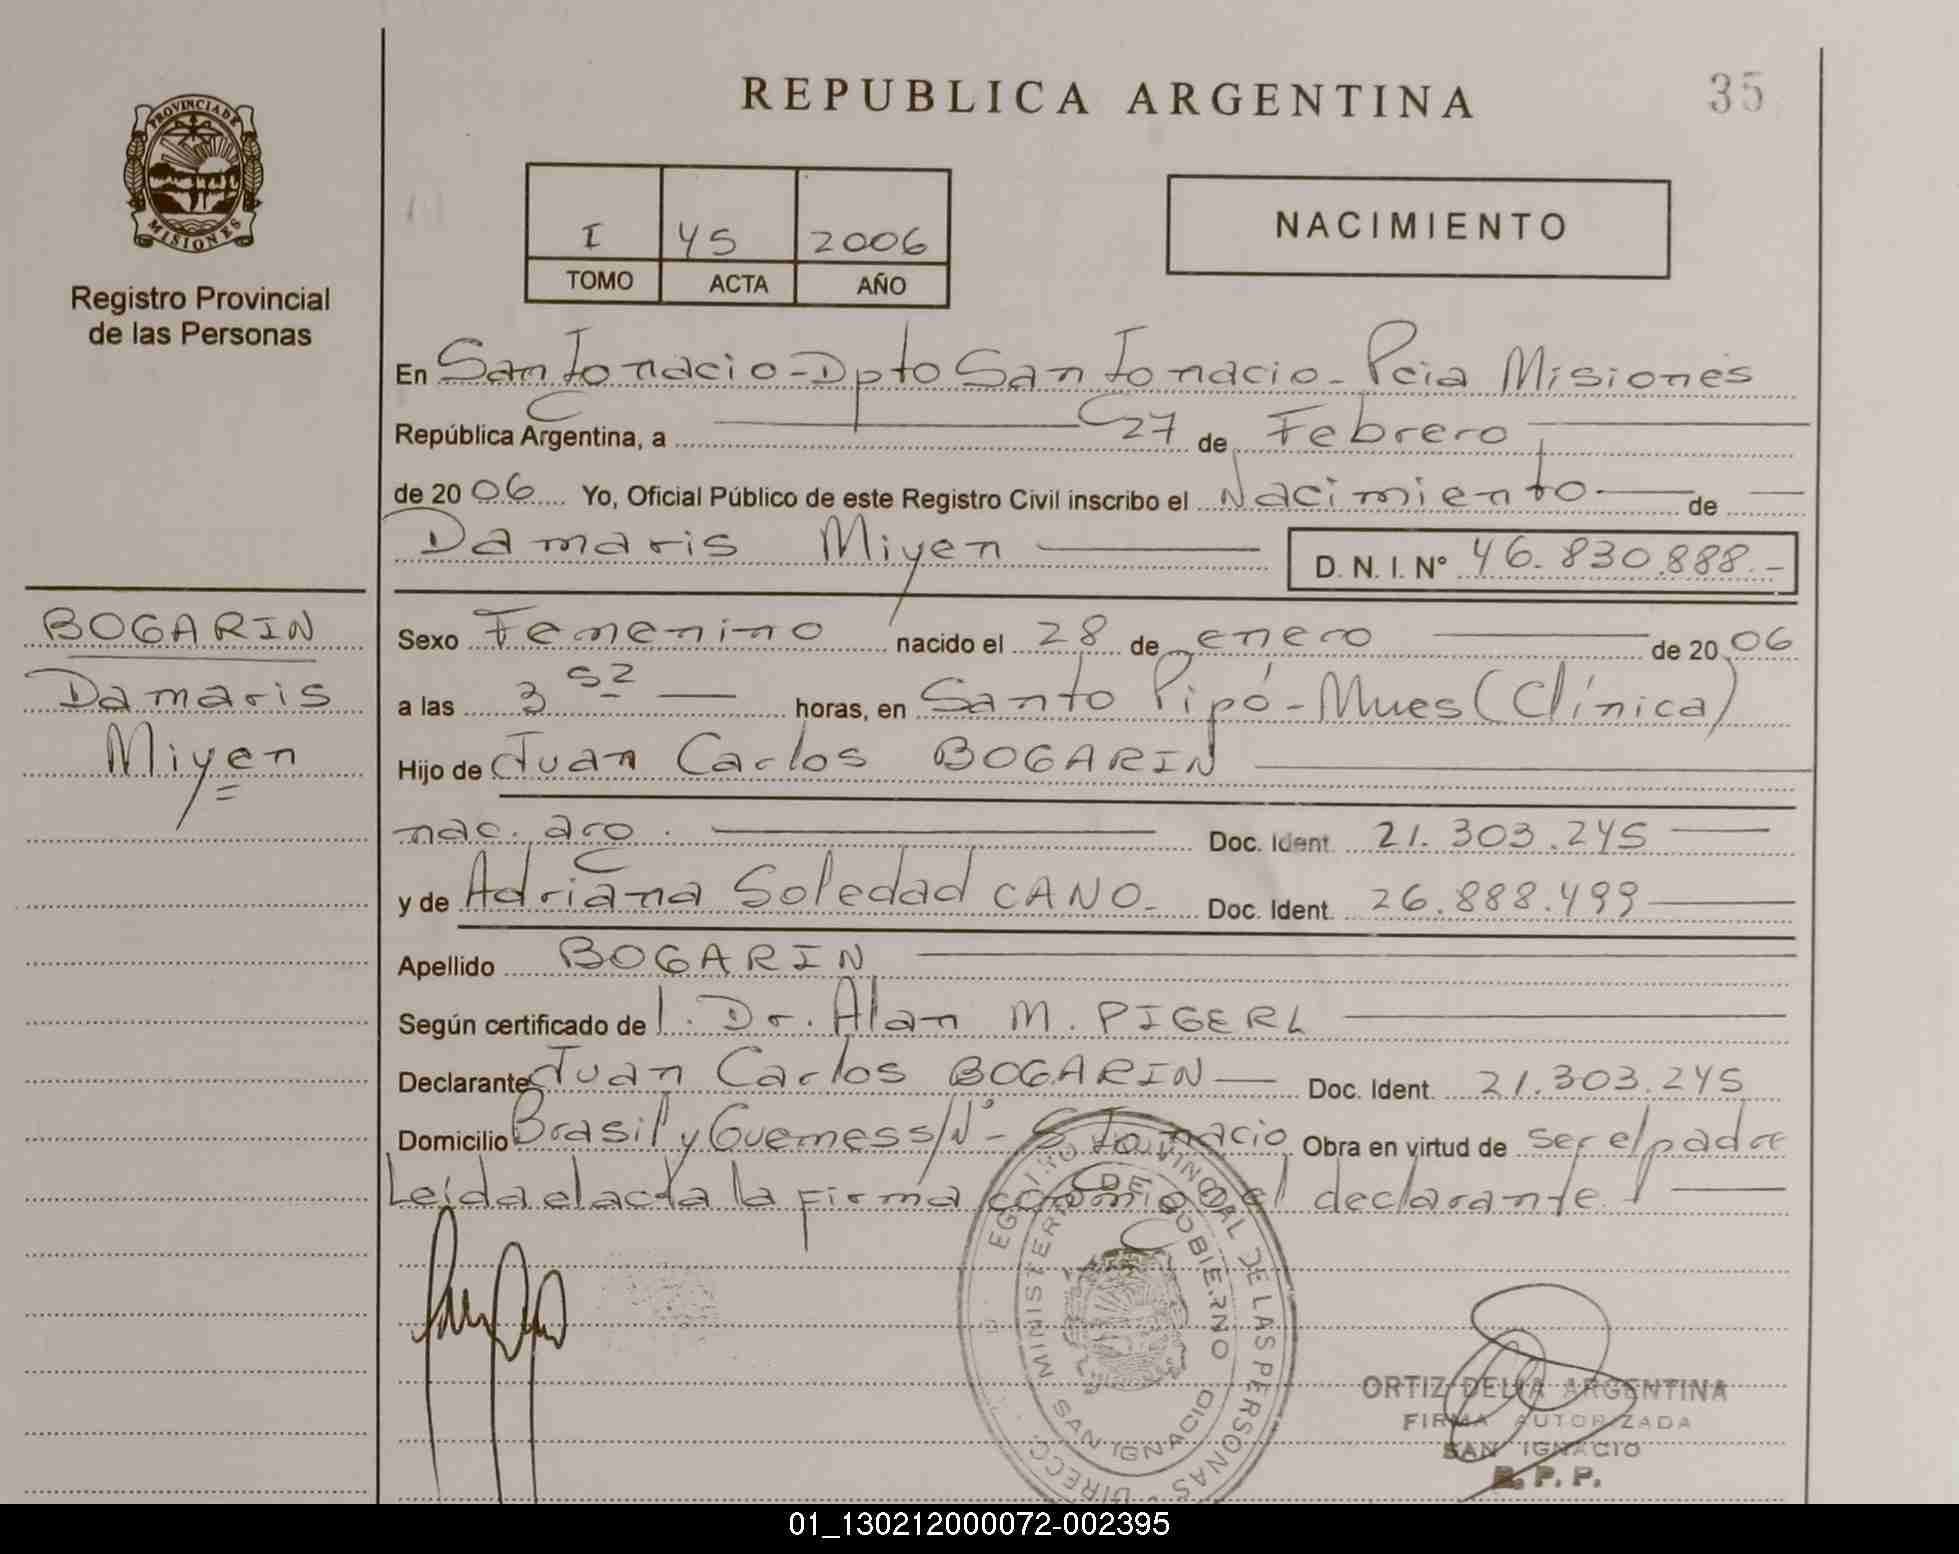 REPUBLICA ARGENTINA
35
PROVINCIA DE
MISIONES
Registro Provincial
de las Personas
I 45 2006
TOMO ACTA AÑO
NACIMIENTO
En San Ignacio - Dpto San Ignacio - Pcia Misiones
República Argentina, a 27 de Febrero
de 2006 Yo, Oficial Público de este Registro Civil inscribo el Nacimiento de
Damaris Miyen D. N. I. Nº 46.830.888.-
BOGARIN
Damaris
Miyen
Sexo Femenino nacido el 28 de enero de 2006
a las 3 52 horas, en Santo Pipó - Mnes (Clínica)
Hijo de Juan Carlos BOGARIN
nac. arg. Doc. Ident. 21.303.245
y de Adriana Soledad CANO - Doc. Ident. 26.888.499
Apellido BOGARIN
Según certificado de l. Dr. Alan M. PIGERL
Declarante Juan Carlos BOGARIN Doc. Ident. 21.303.245
Domicilio Brasil y Guemes s/Nº - S Ignacio Obra en virtud de ser el padre
Leída el acta la firma conmigo el declarante
REGISTRO PROVINCIAL DE LAS PERSONAS - DIRECC
MINISTERIO DE GOBIERNO
SAN IGNACIO
ORTIZ DELIA ARGENTINA
FIRMA AUTORIZADA
SAN IGNACIO
R. P. P.
01_130212000072-002395